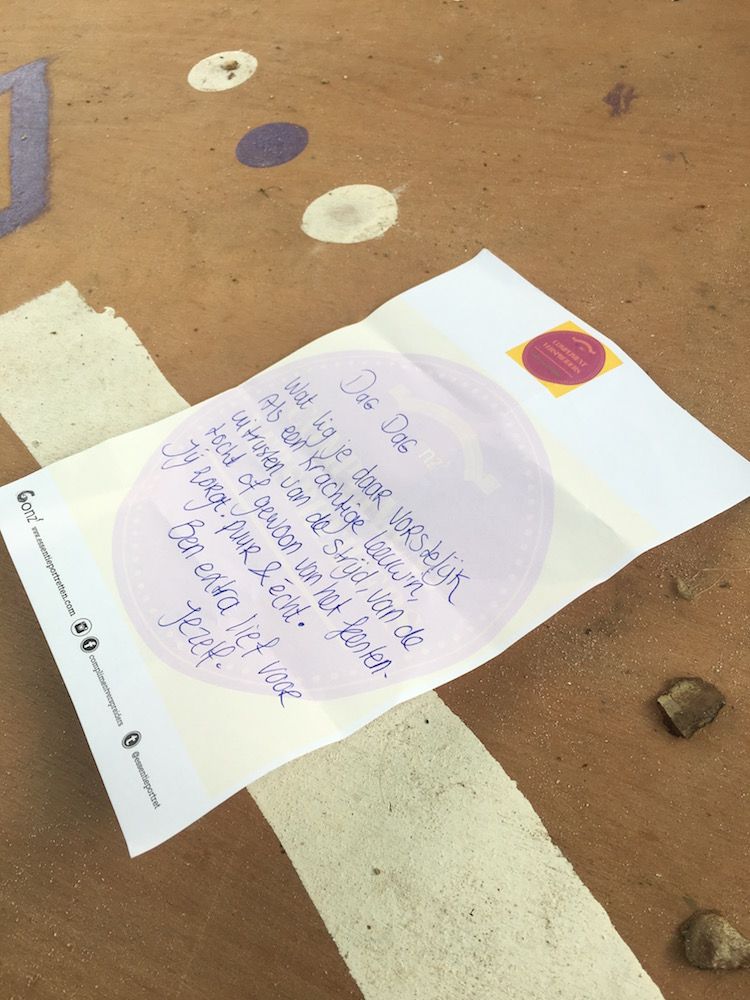 Dag Dag
Wat lig je daar vorstelijk
Als een krachtige leeuwin,
uitrusten van de strijd, van de
tocht of gewoon van het feesten.
Jij zorgt. Puur & écht.
Ben extra lief voor
jezelf.
COMPLIMENT
VERSPREIDERS
Gonz'
www.essentieportretten.com
complimentverspreiders
@essentieportret